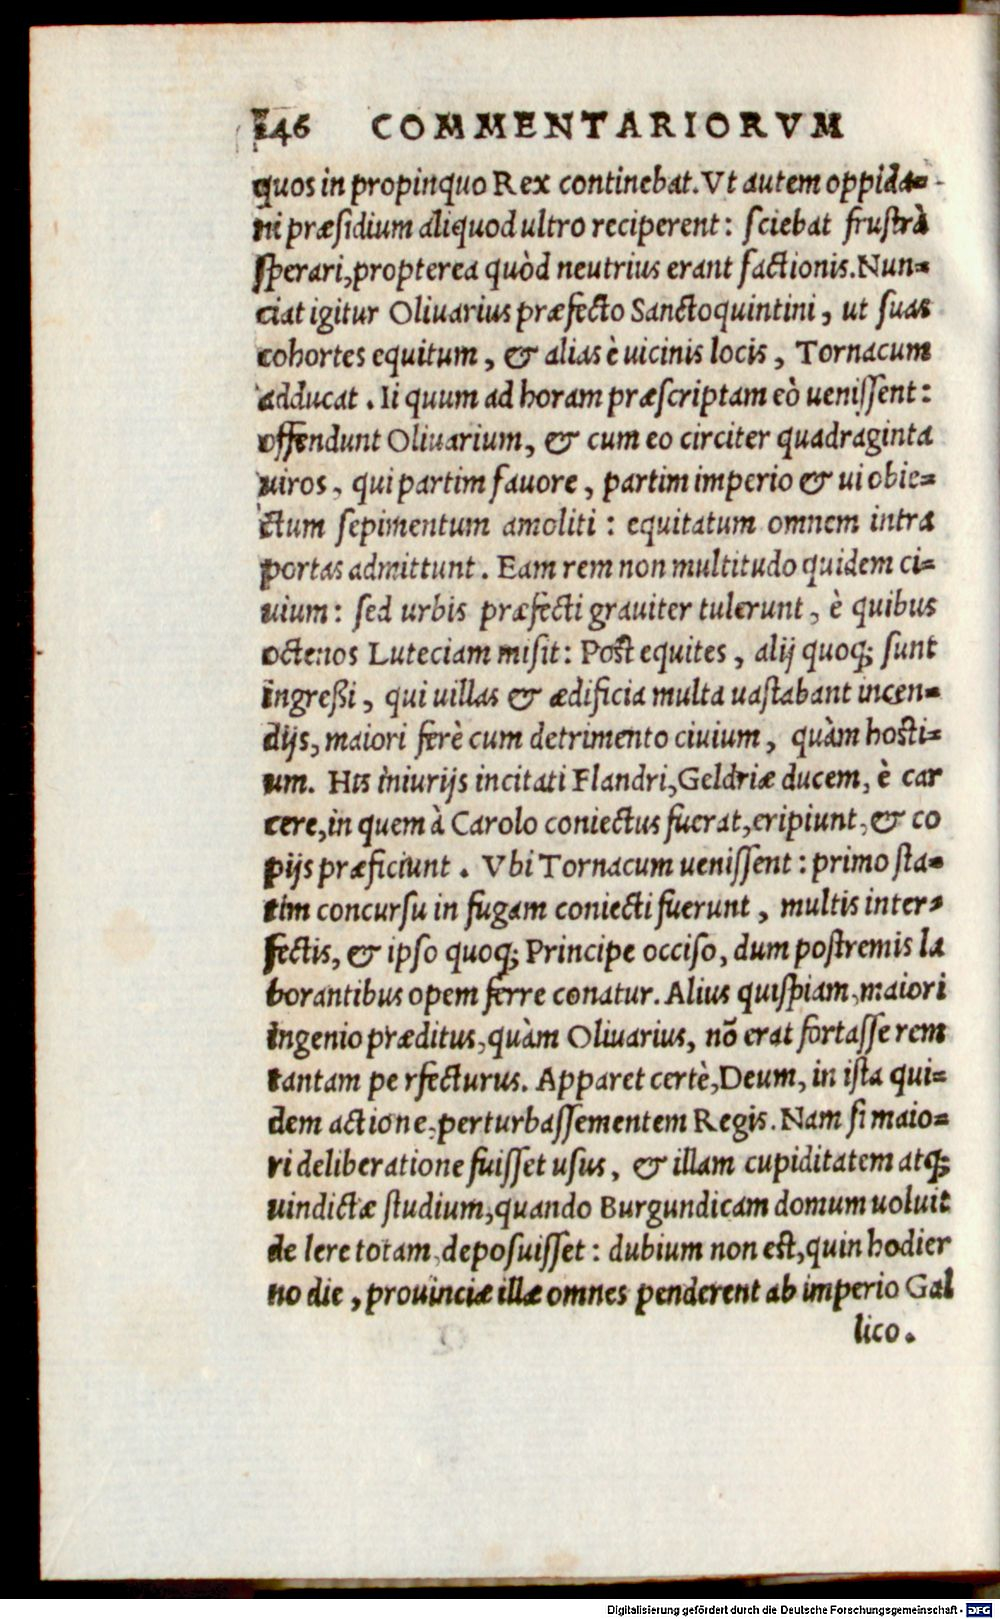 146 COMMENTARIORVM
quos in propinquo Rex continebat. Vt autem oppida=
ni præsidium aliquod ultro reciperent: sciebat frustrà
sperari, propterea quòd neutrius erant factionis. Nun=
ciat igitur Oliuarius præfecto Sanctoquintini, ut suas
cohortes equitum, & alias è uicinis locis, Tornacum
adducat. Ii quum ad horam præscriptam eò uenissent:
offendunt Oliuarium, & cum eo circiter quadraginta
uiros, qui partim fauore, partim imperio & ui obie=
ctum sepimentum amoliti: equitatum omnem intra
portas admittunt. Eam rem non multitudo quidem ci=
uium: sed urbis præfecti grauiter tulerunt, è quibus
octenos Luteciam misit: Post equites, alij quoq; sunt
ingreßi, qui uillas & ædificia multa uastabant incen=
dijs, maiori ferè cum detrimento ciuium, quàm hosti=
um. His iniurijs incitati Flandri, Geldriæ ducem, è car
cere, in quem à Carolo coniectus fuerat, eripiunt, & co
pijs præficiunt. Vbi Tornacum uenissent: primo sta=
tim concursu in fugam coniecti fuerunt, multis inter=
fectis, & ipso quoq; Principe occiso, dum postremis la
borantibus opem ferre conatur. Alius quispiam, maiori
ingenio præditus, quàm Oliuarius, nõ erat fortasse rem
tantam pe rfecturus. Apparet certè, Deum, in ista qui=
dem actione, perturbasse mentem Regis. Nam si maio=
ri deliberatione fuisset usus, & illam cupiditatem atq;
uindictæ studium, quando Burgundicam domum uoluit
de lere totam, deposuisset: dubium non est, quin hodier
no die, prouinciæ illæ omnes penderent ab imperio Gal
lico.
Digitalisierung gefördert durch die Deutsche Forschungsgemeinschaft - DFG